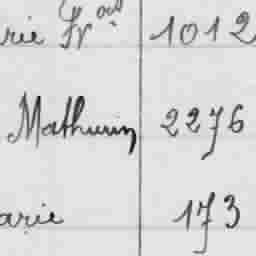 rie Frois 1012
Mathurin 2276
arie 173